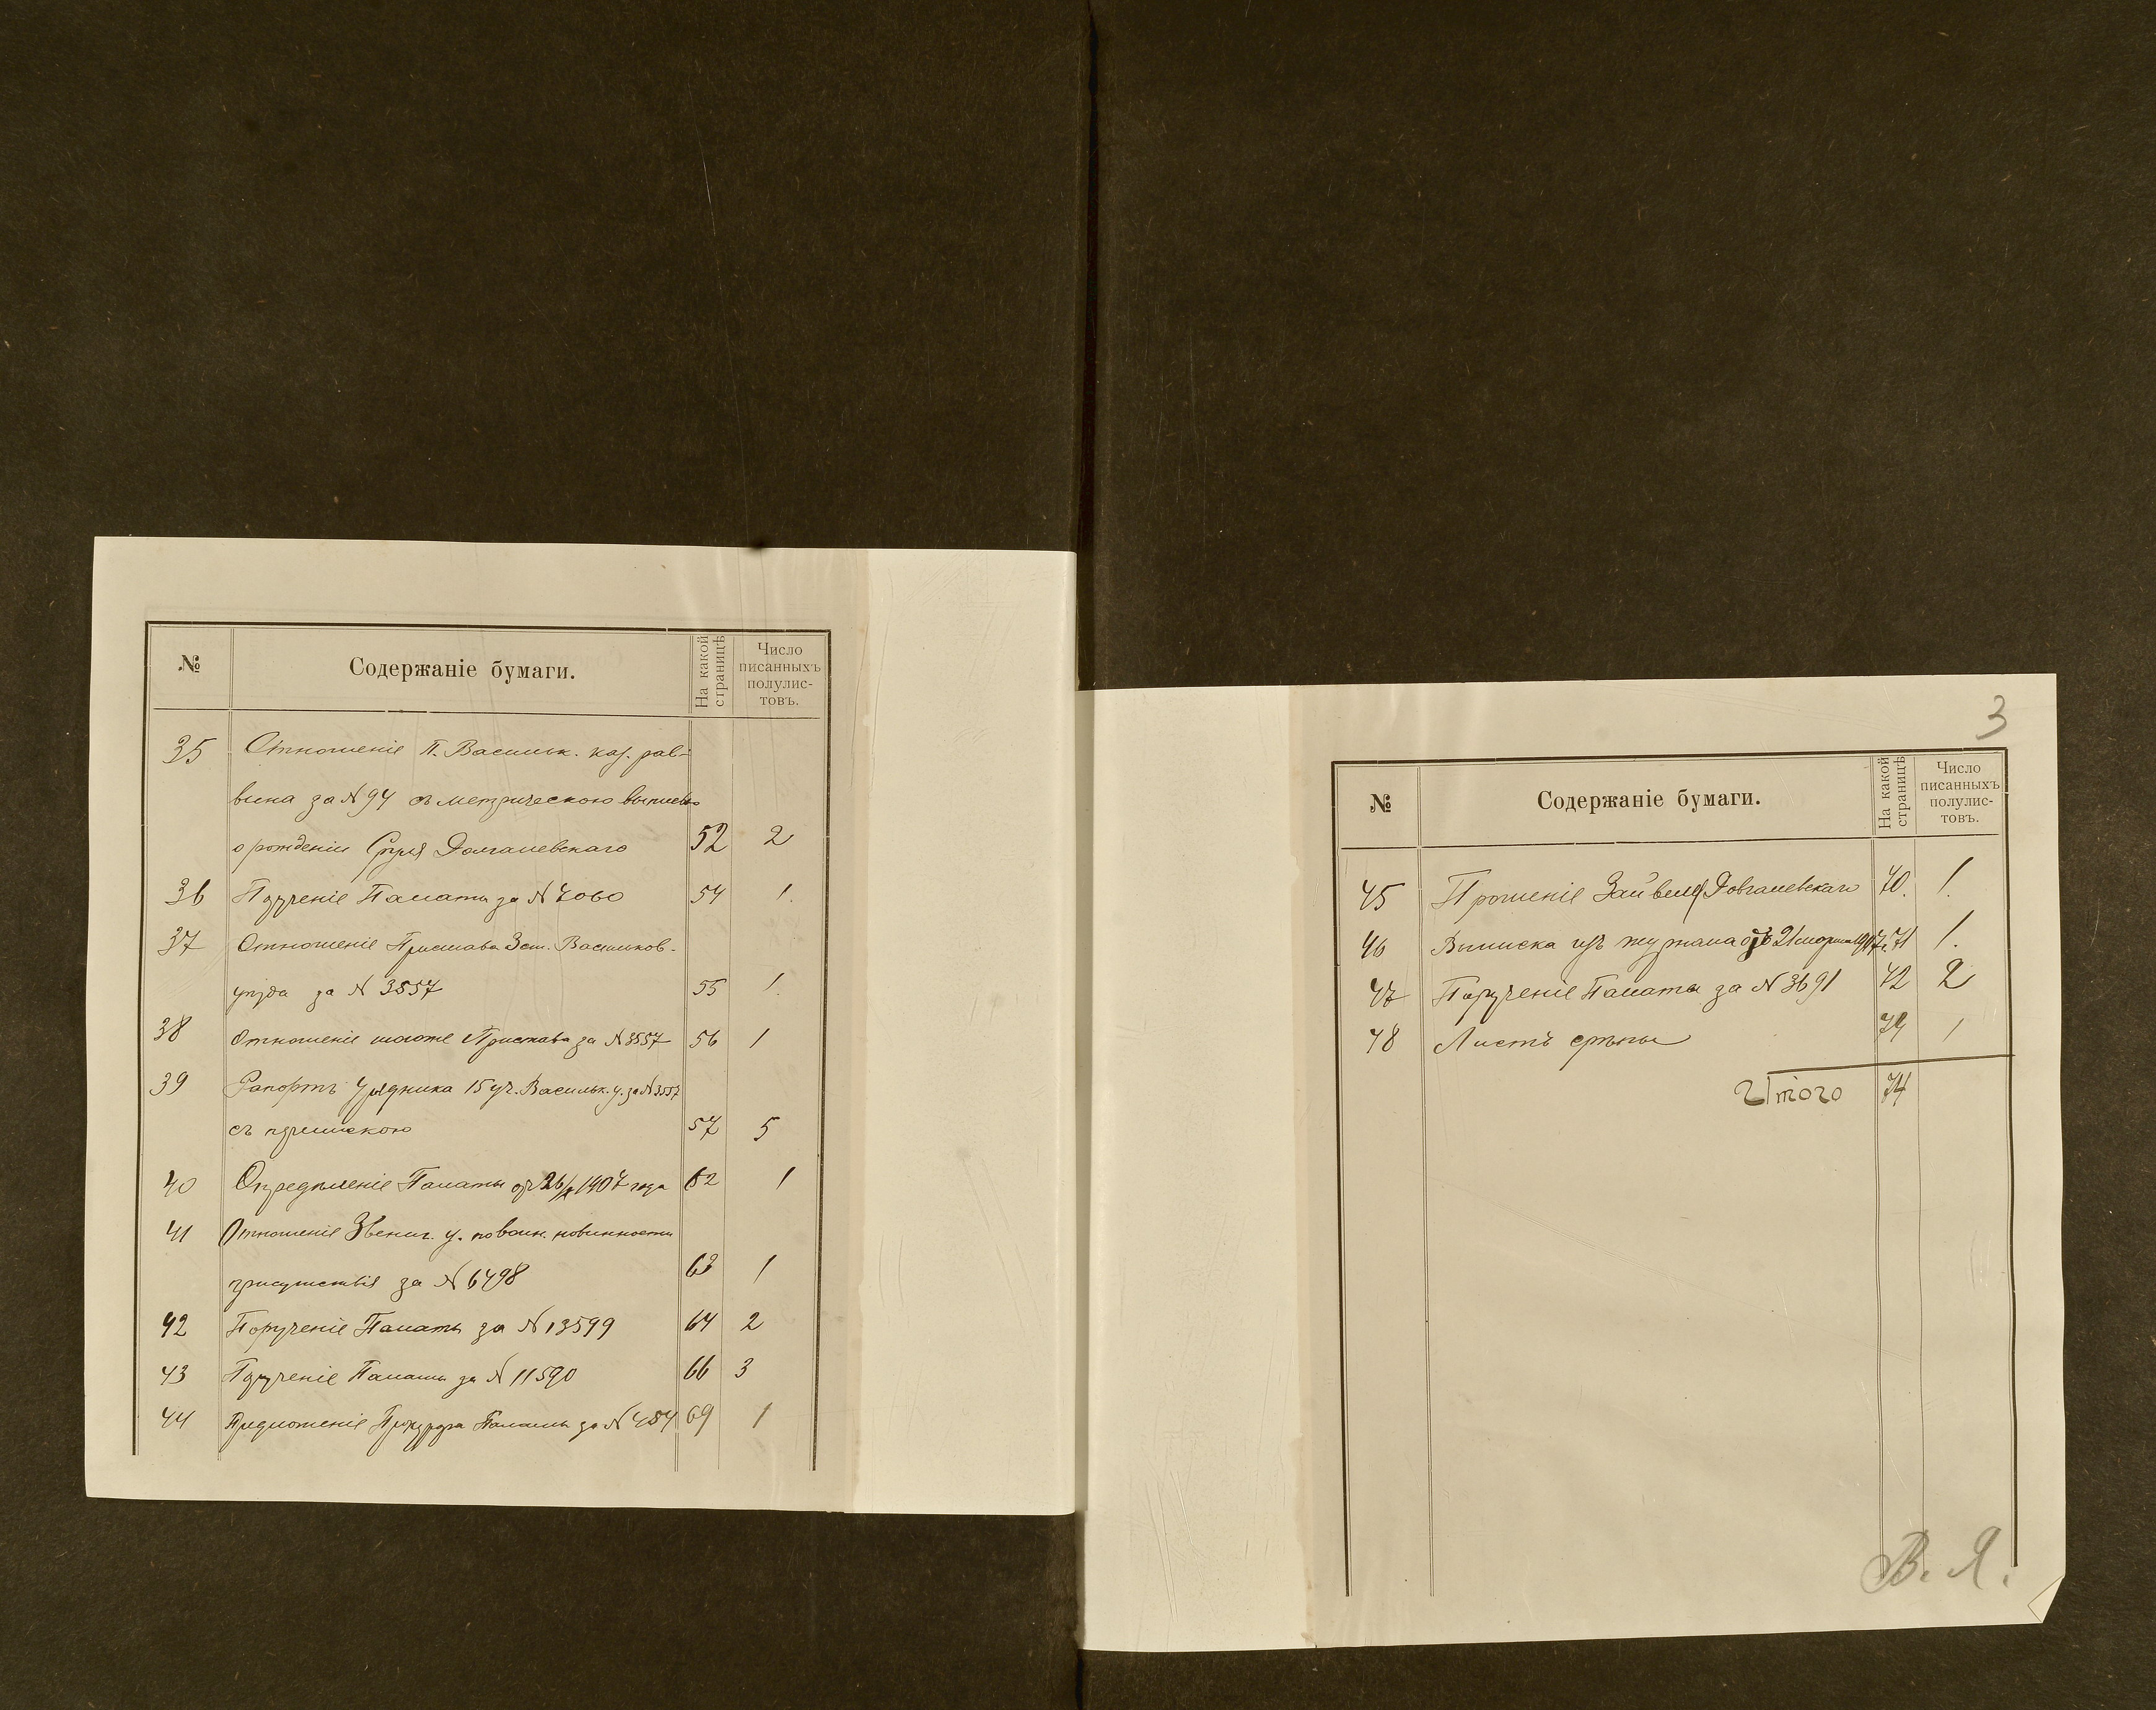 № Содержаніе бумаги. На какой страницѣ Число писанныхъ полулис-товъ.
35 Отношеніе П. Васильк. каз. рав-
вина за № 94 съ метрическою выписью
о рожденіи Сруля Долгалевскаго 52 2
36 Порученіе Палаты за № 7060 54 1.
37 Отношеніе Пристава 3 ст. Васильков-
уѣзда за № 3557 55 1.
38 Отношеніе того же Пристава за № 3557 56 1
39 Рапортъ Урядника 15 уч. Васильк. у. за № 3557
съ подпискою 57 5
40 Опредѣленіе Палаты отъ 26/ 1907 года 62 1
41 Отношеніе Звениг. у. по воин. повинности
присутствія за № 6498 63 1
42 Порученіе Палаты за № 13599 64 2
43 Порученіе Палаты за № 11590 66 3
44 Предложеніе Прокурора Палаты за № 484 69 1
3
№ Содержаніе бумаги. На какой страницѣ Число писанныхъ полулис-товъ.
45 Прошеніе Зайвеля Довгалевскаго 70. 1.
46 Выписка изъ журнала отъ 21 марта 1907 г. 71 1.
47 Порученіе Палаты за № 3691 72 2
48 Листъ 74 1
Итого 74
В. Я.